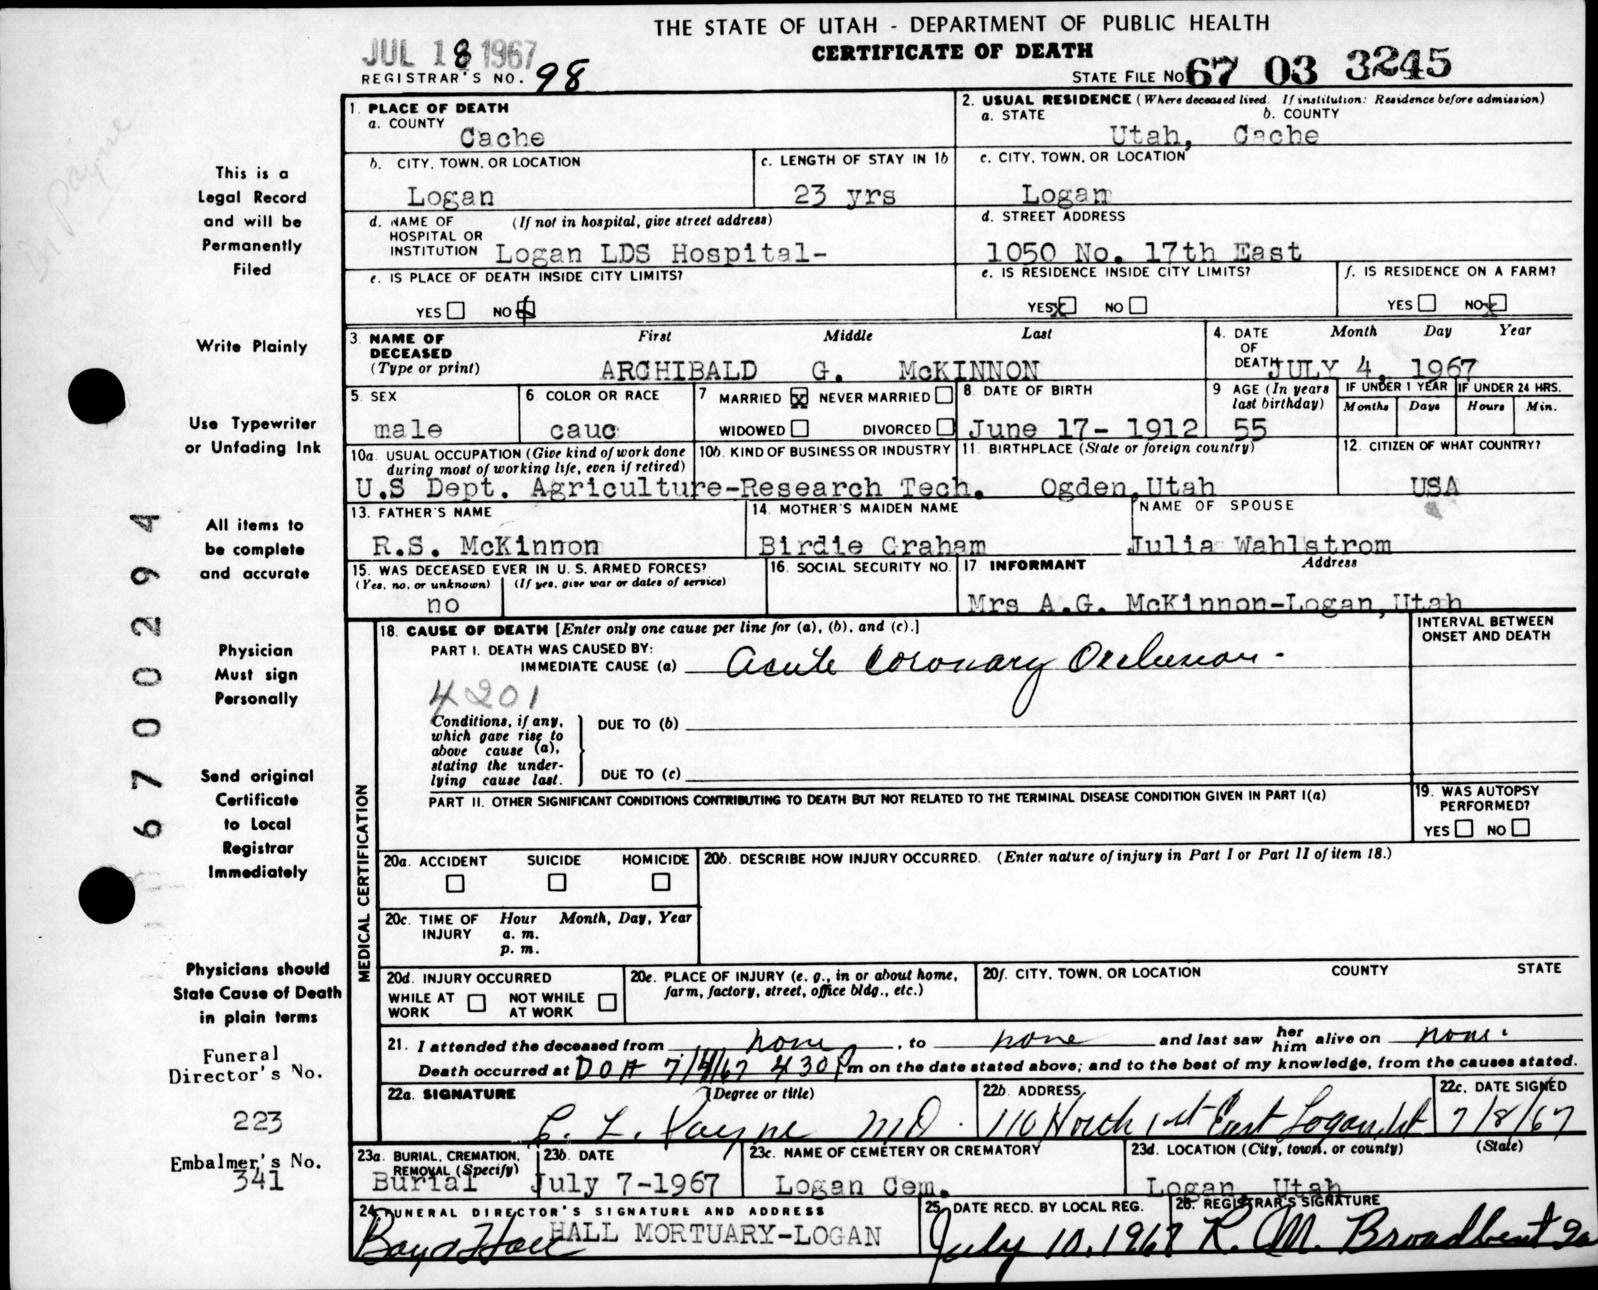 THE STATE OF UTAH - DEPARTMENT OF PUBLIC HEALTH
JUL 18 1967
CERTIFICATE OF DEATH
REGISTRAR'S NO. 98
STATE FILE No. 67 03 3245
1. PLACE OF DEATH
a. COUNTY
Cache
2. USUAL RESIDENCE (Where deceased lived. If institution: Residence before admission)
a. STATE b. COUNTY
Utah, Cache
b. CITY, TOWN, OR LOCATION
Logan
c. LENGTH OF STAY IN 1b
23 yrs
c. CITY, TOWN, OR LOCATION
Logan
d. NAME OF HOSPITAL OR INSTITUTION (If not in hospital, give street address)
Logan LDS Hospital-
d. STREET ADDRESS
1050 No. 17th East
e. IS PLACE OF DEATH INSIDE CITY LIMITS?
YES NO
e. IS RESIDENCE INSIDE CITY LIMITS?
YES X NO
f. IS RESIDENCE ON A FARM?
YES NO X
3. NAME OF DECEASED (Type or print)
First Middle Last
ARCHIBALD G. McKINNON
4. DATE OF DEATH
Month Day Year
JULY 4, 1967
5. SEX
male
6 COLOR OR RACE
cauc
7 MARRIED X NEVER MARRIED
WIDOWED DIVORCED
8. DATE OF BIRTH
June 17- 1912
9 AGE (In years last birthday)
55
IF UNDER 1 YEAR
Months Days
IF UNDER 24 HRS.
Hours Min.
10a. USUAL OCCUPATION (Give kind of work done during most of working life, even if retired)
10b. KIND OF BUSINESS OR INDUSTRY
U.S Dept. Agriculture-Research Tech.
11. BIRTHPLACE (State or foreign country)
Ogden, Utah
12. CITIZEN OF WHAT COUNTRY?
USA
13. FATHER'S NAME
R.S. McKinnon
14. MOTHER'S MAIDEN NAME
Birdie Graham
NAME OF SPOUSE
Julia Wahlstrom
15. WAS DECEASED EVER IN U. S. ARMED FORCES?
(Yes, no, or unknown) (If yes, give war or dates of service)
no
16. SOCIAL SECURITY NO.
17 INFORMANT Address
Mrs A.G. McKinnon-Logan, Utah
MEDICAL CERTIFICATION
18. CAUSE OF DEATH [Enter only one cause per line for (a), (b), and (c).]
INTERVAL BETWEEN ONSET AND DEATH
PART I. DEATH WAS CAUSED BY:
IMMEDIATE CAUSE (a) Acute Coronary Occlusion.
4201
Conditions, if any, which gave rise to above cause (a), stating the underlying cause last.
DUE TO (b)
DUE TO (c)
PART II. OTHER SIGNIFICANT CONDITIONS CONTRIBUTING TO DEATH BUT NOT RELATED TO THE TERMINAL DISEASE CONDITION GIVEN IN PART I(a)
19. WAS AUTOPSY PERFORMED?
YES NO
20a. ACCIDENT SUICIDE HOMICIDE
20b. DESCRIBE HOW INJURY OCCURRED. (Enter nature of injury in Part I or Part II of item 18.)
20c. TIME OF INJURY Hour Month, Day, Year
a. m.
p. m.
20d. INJURY OCCURRED
WHILE AT WORK NOT WHILE AT WORK
20e. PLACE OF INJURY (e. g., in or about home, farm, factory, street, office bldg., etc.)
20f. CITY, TOWN, OR LOCATION COUNTY STATE
21. I attended the deceased from none, to none and last saw her him alive on none.
Death occurred at DOA 7/4/67 4 30 P m on the date stated above; and to the best of my knowledge, from the causes stated.
22a. SIGNATURE (Degree or title)
C. L. Payne MD.
22b. ADDRESS
110 North 1st East Logan Ut
22c. DATE SIGNED
7/8/67
23a. BURIAL, CREMATION, REMOVAL (Specify)
Burial
23b. DATE
July 7-1967
23c. NAME OF CEMETERY OR CREMATORY
Logan Cem.
23d. LOCATION (City, town, or county) (State)
Logan, Utah
24. FUNERAL DIRECTOR'S SIGNATURE AND ADDRESS
Boyd Hall HALL MORTUARY-LOGAN
25. DATE RECD. BY LOCAL REG.
July 10, 1967
26. REGISTRAR'S SIGNATURE
R. M. Broadbent
This is a
Legal Record
and will be
Permanently
Filed
Write Plainly
Use Typewriter
or Unfading Ink
All items to
be complete
and accurate
Physician
Must sign
Personally
Send original
Certificate
to Local
Registrar
Immediately
Physicians should
State Cause of Death
in plain terms
Funeral
Director's No.
223
Embalmer's No.
341
6700294